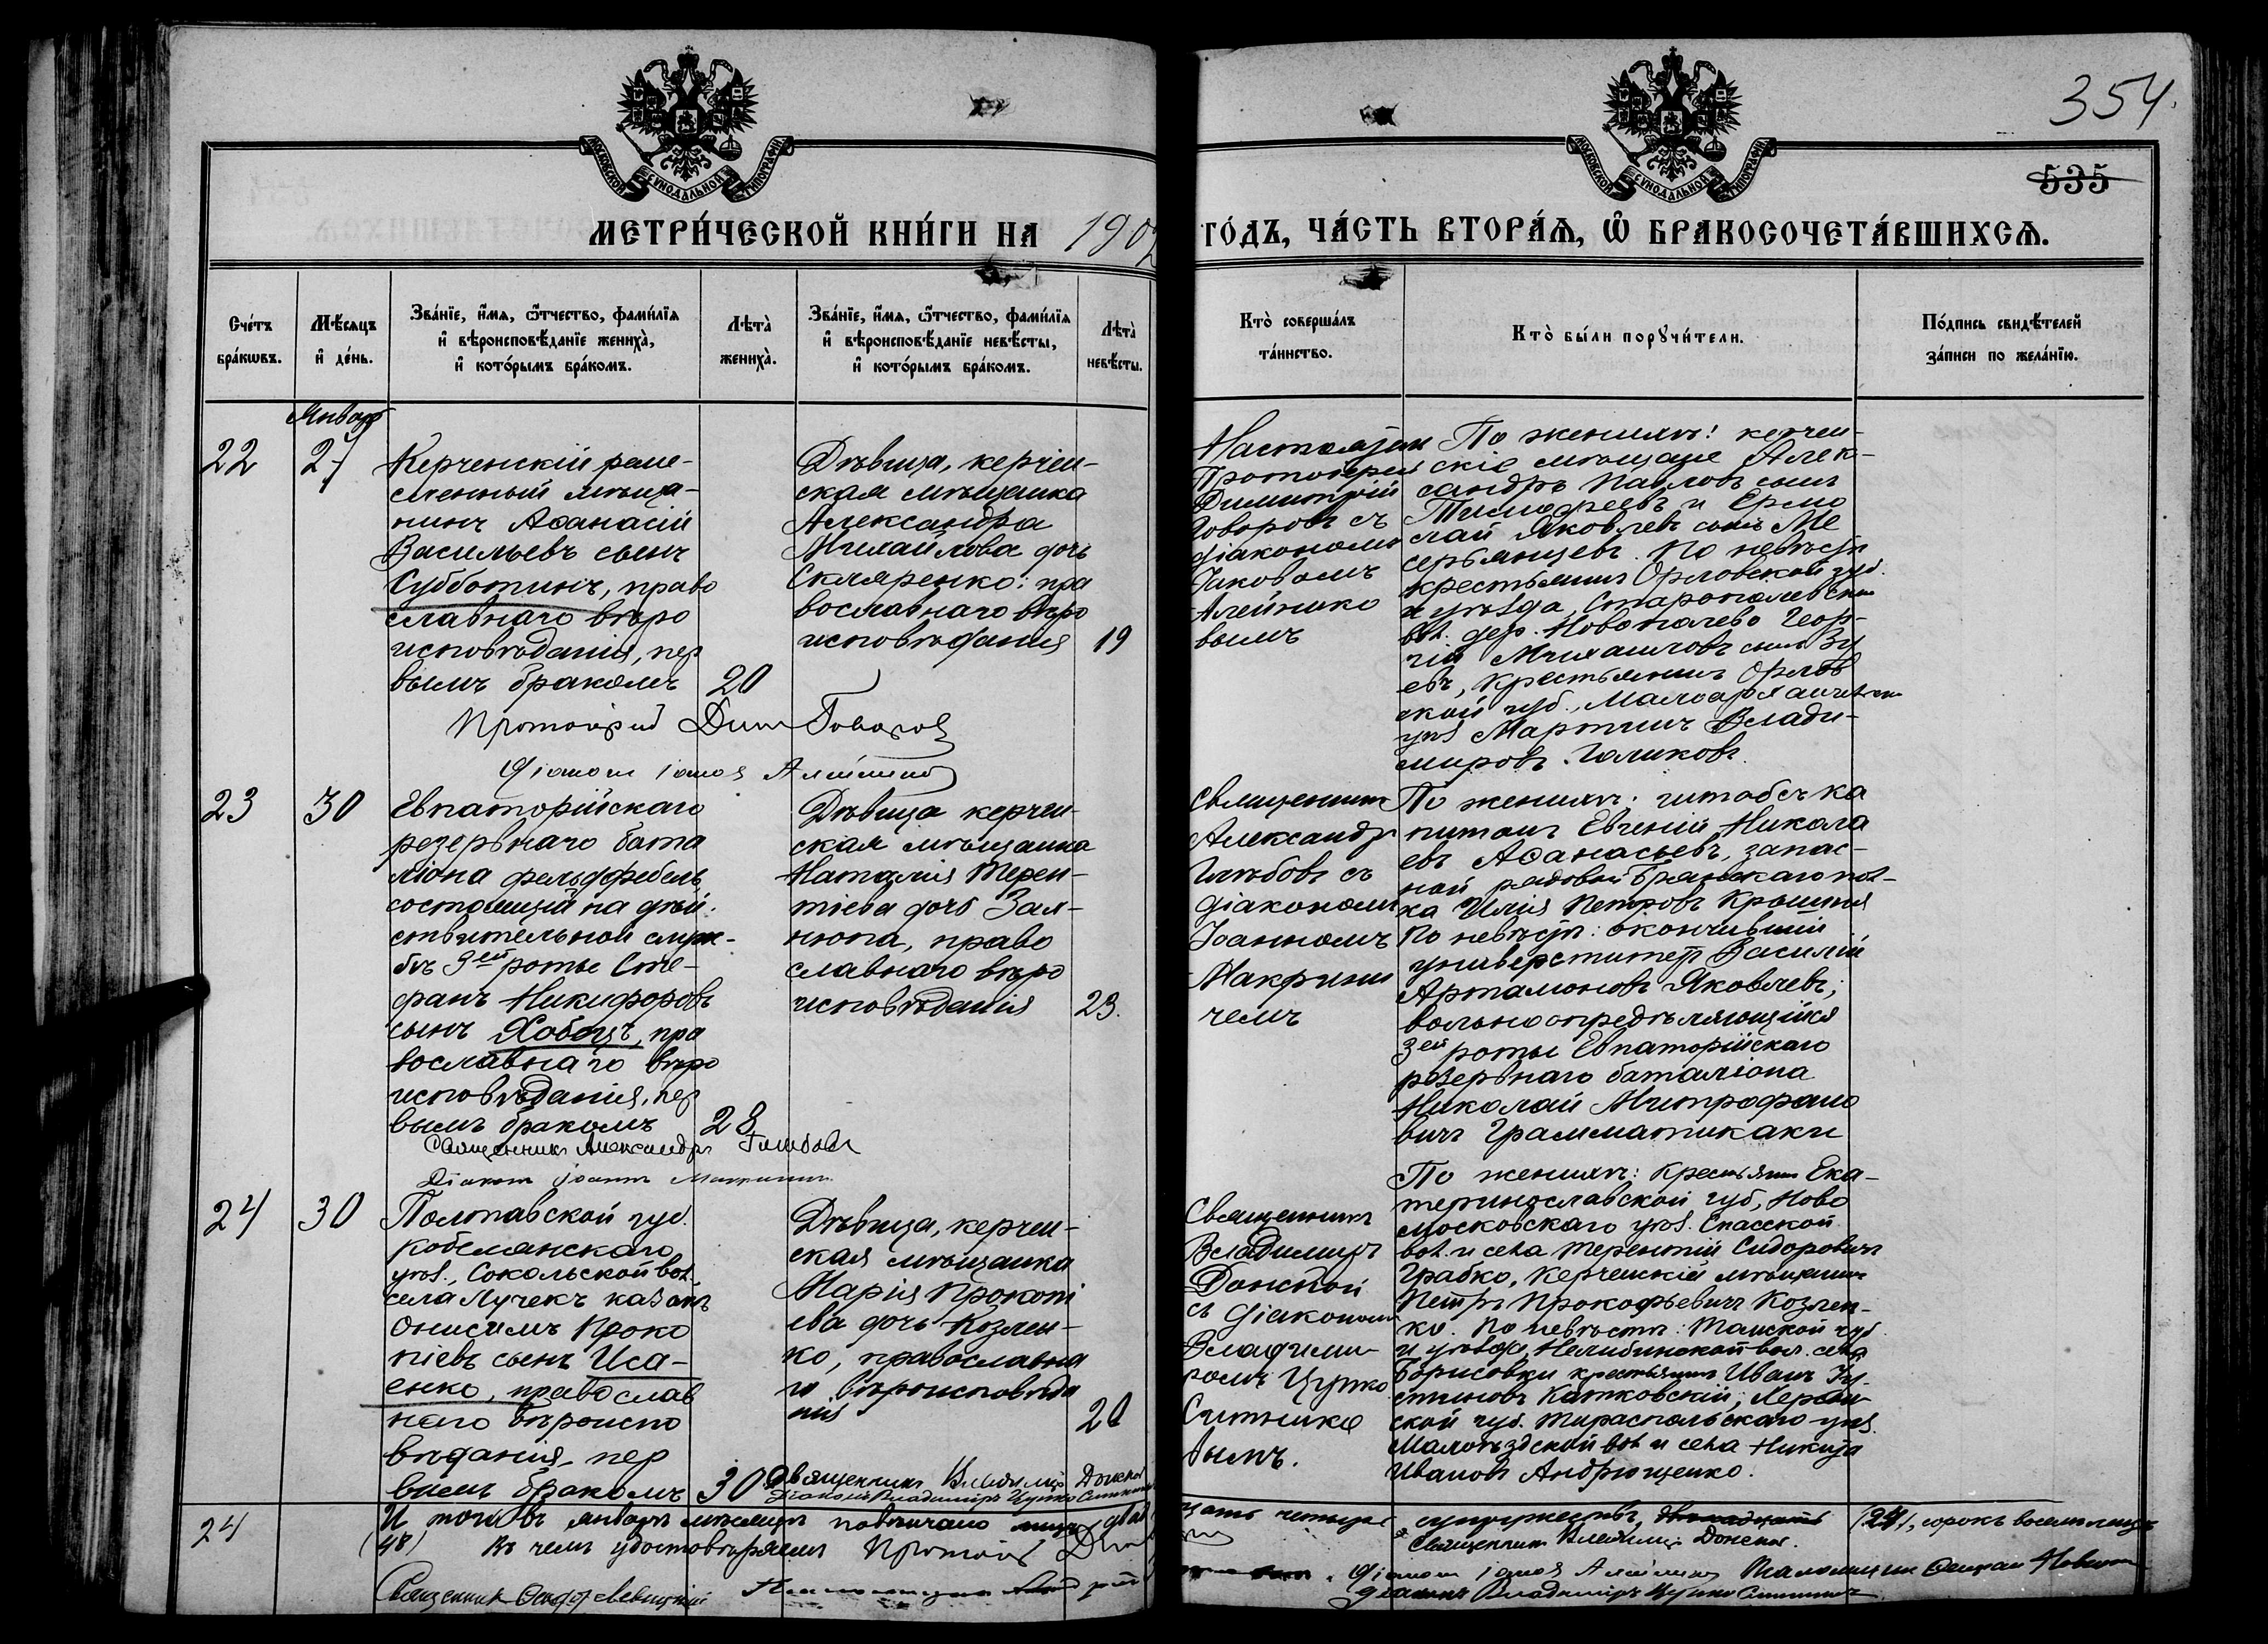 354.
535
МОСКОВСКОЙ СѴНОДАЛЬНОЙ ТИПОГРАФІИ
МОСКОВСКОЙ СѴНОДАЛЬНОЙ ТИПОГРАФІИ
МЕТРИ́ЧЕСКОЙ КНИ́ГИ НА 1902
ГО́ДЪ, ЧА́СТЬ ВТОРА́Я, Ѡ҆ БРАКОСОЧЕТА́ВШИХСЯ.
Сче́тъ
бра́кѡвъ.
Мѣ́сяцъ
и҆ де́нь.
Зва́нїе, и҆́мя, ѻ҆́тчество, фами́лїя
и҆ вѣроисповѣ́данїе жениха̀,
и҆ кото́рымъ бра́комъ.
Лѣта̀
жениха̀.
Зва́нїе, и҆́мя, ѻ҆́тчество, фами́лїя
и҆ вѣроисповѣ́данїе невѣ́сты,
и҆ кото́рымъ бра́комъ.
Лѣта̀
невѣ́сты.
Кто̀ соверша́лъ
та́инство.
Кто̀ бы́ли порꙋчи́тели.
По́дпись свидѣ́телей
за́писи по жела́нїю.
Январь
22
27
Керченскій реме-
сленный мѣща-
нинъ Аѳанасій
Васильевъ сынъ
Субботинъ, право
славнаго вѣро
исповѣданія, пер
вымъ бракомъ
20
Дѣвица, керчен-
ская мѣщанка
Александра
Михайлова дочь
Скляренко; пра
вославнаго вѣро
исповѣданія
19
Протоіерей
Димитрій
Говоровъ съ
діакономъ
Іаковомъ
Алейнико
вымъ
По женихѣ: керчен-
скіе мѣщане Алек-
сандръ Павловъ сынъ
Тимофеевъ и Ермо
лай Яковлевъ сынъ Ме
серьянцевъ. По невѣстѣ
крестьянинъ Орловской губ.
и уѣзда,
вол. дер. Новополево Геор-
гій Михаиловъ сынъ Зу
евъ, крестьянинъ Орлов
ской губ., Малоархангельск
уѣз Мартинъ Влади-
мировъ Голиковъ.
Протоіерей Дим Говоров
Діаконъ Іаков Алейников
23
30
Евпаторійскаго
резервнаго бата
ліона фельдфебель
состоящій на дѣй-
ствительной служ-
бѣ 3ей роты Сте-
фанъ Никифоровъ
сынъ Хобоцъ, пра
вославнаго вѣро
исповѣданія, пер
вымъ бракомъ
28
Дѣвица керчен-
ская мѣщанка
Наталія Терен-
тіева дочь Зал-
нюпа, право
славнаго вѣро
исповѣданія
23.
Священникъ
Александръ
Глѣбовъ съ
діакономъ
Іоанномъ
Макрини
чемъ
По женихѣ: штабсъ ка
питанъ Евгеній Никола
евъ Аѳанасьевъ, запас-
ной рядовой Брянскаго пол-
ка Илія Петровъ Крышня
По невѣстѣ: окончившій
университетъ Василій
Артамоновъ Яковлевъ;
вольноопредѣляющійся
3ей роты Евпаторійскаго
резервнаго баталіона
Николай Митрофано
вичъ Грамматикаки
Священникъ Александръ Глѣбовъ
Діаконъ Іоаннъ
24
30
Полтавской губ.
Кобелянскаго
уѣз., Сокольской вол.
села Лучекъ казакъ
Онисимъ Проко
піевъ сынъ Иса-
енко, православ
наго вѣроиспо
вѣданія, пер
вымъ бракомъ
30
Дѣвица, керчен-
ская мѣщанка
Марія Прокопі
ева дочь Козлен-
ко, православна
го вѣроисповѣда
нія
20
Священникъ
Владимиръ
Донской
съ діакономъ
Владими-
ромъ Цупко
Ситнико
вымъ.
По женихѣ: крестьянинъ Ека-
теринославской губ, Ново
московскаго уѣз. Спасской
вол. и села Терентій Сидоровичъ
Грабко, Керченскій мѣщанинъ
Петръ Прокофьевичъ Козлен-
ко. По невѣстѣ: Томской губ
и уѣзда, Нелюбинской вол. села
Борисовки крестьянинъ Иванъ Іу-
стиновъ Катковскій; Херсон
ской губ. Тираспольскаго уѣз.
Малоѣздской вол. и села Никита
Ивановъ Андрющенко.
Священникъ Владимир Донской
Діаконъ Владимиръ Цупко Ситников
24
И того въ январѣ мѣсяцѣ повѣнчано два
цать четыре супружествъ, (24), сорокъ восемь лицъ
(48) Въ чемъ удостовѣряемъ Протоіер
Священник Владимир Донской.
Священник Ѳеодор Левицкій
Діакон Іаков Алейников
Діаконъ Владимиръ Цупко Ситников